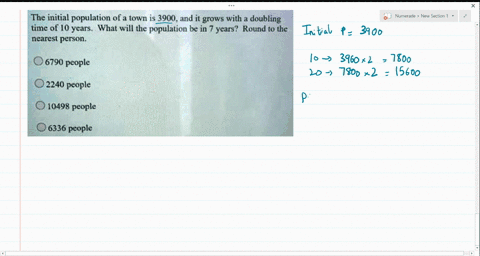 Numerade > New Section 1
The initial population of a town is 3900, and it grows with a doubling
time of 10 years. What will the population be in 7 years? Round to the
nearest person.
6790 people
2240 people
10498 people
6336 people
Initial P = 3900
10 → 3960 × 2 = 7800
20 → 7800 × 2 = 15600
P